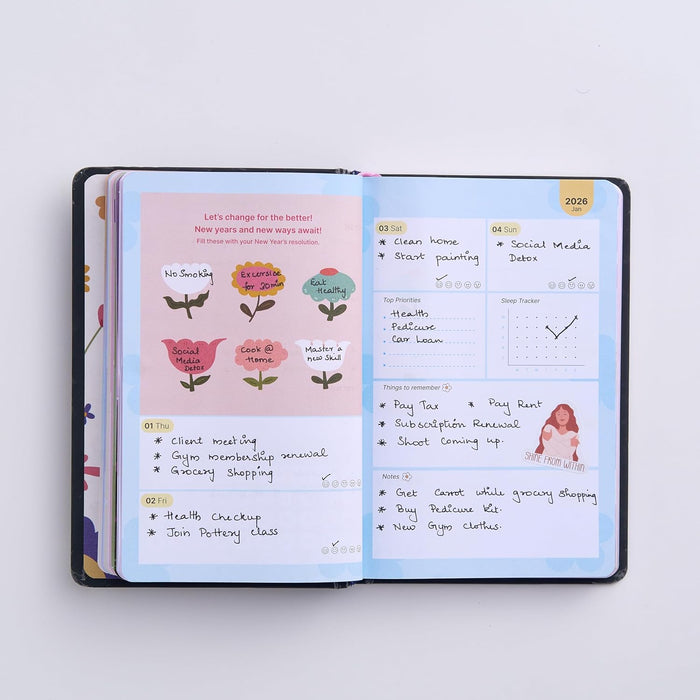 Let's change for the better!
New years and new ways await!
Fill these with your New Year's resolution.
No Smoking
Excersise
for 20min
Eat
Healthy
Social
Media
Detox
Cook @
Home
Master a
new skill
01 Thu
* Client meeting
* Gym membership renewal
* Grocery shopping
02 Fri
* Health Checkup
* Join Pottery class
2026
Jan
03 Sat
* Clean home
* Start painting
04 Sun
* Social Media
Detox
Top Priorities
Health
Pedicure
Car Loan
Sleep Tracker
Things to remember
* Pay Tax * Pay Rent
* Subscription Renewal
* Shoot Coming up.
SHINE FROM WITHIN
Notes
* Get Carrot while grocery shopping
* Buy Pedicure kit.
* New Gym clothes.